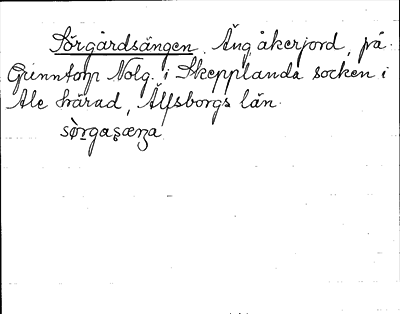 Sörgårdsängen. Äng, åkerjord, på
Grinntorp Nolg. i Skepplanda socken i
Ale härad, Älfsborgs län.